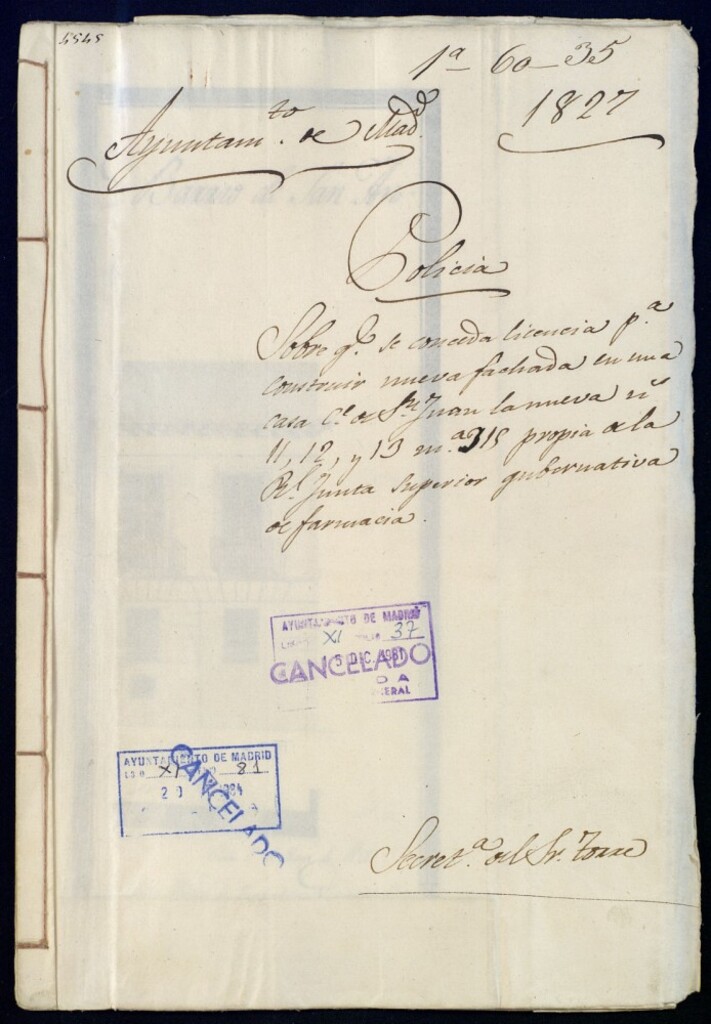 4545
1ª 60-35
1827
Ayuntam.to de Mad.d
Policia
Sobre q.e se conceda licencia p.a
construir nueva fachada en una
casa C.e de S.n Juan la nueva n.s
11, 12, y 13 m.a 315 propia de la
R.l Junta superior gubernativa
de farmacia.
AYUNTAMIENTO DE MADRID
XI 37
15 DIC. 1981
CANCELADO
AYUNTAMIENTO DE MADRID
XI 81
CANCELADO
Secret.a del Sr. Torre